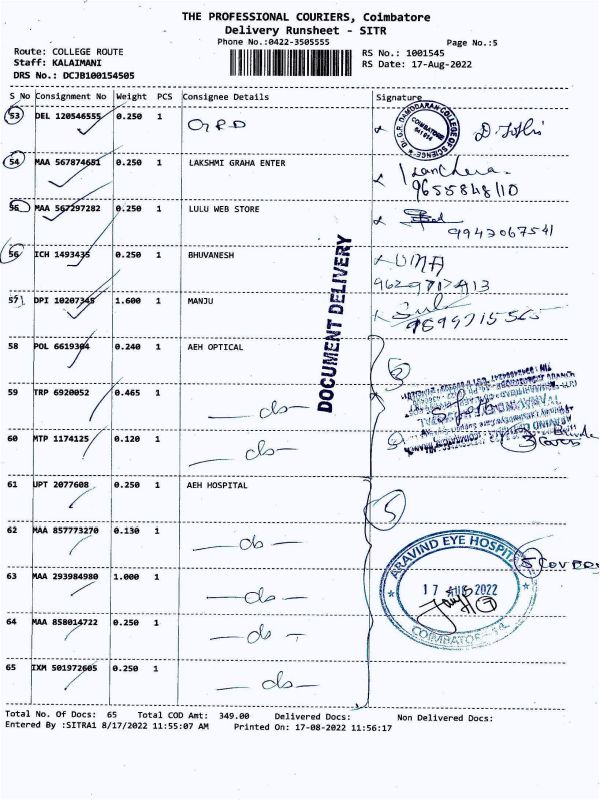 THE PROFESSIONAL COURIERS, Coimbatore
Delivery Runsheet - SITR
Phone No.:0422-3505555 Page No.:5
Route: COLLEGE ROUTE RS No.: 1001545
Staff: KALAIMANI RS Date: 17-Aug-2022
DRS No.: DCJB100154505
S No Consignment No Weight PCS Consignee Details Signature
53 DEL 120546555 0.250 1 GRD
Dr. G.R. DAMODARAN COLLEGE OF SCIENCE COIMBATORE 641 014
54 MAA 567874651 0.250 1 LAKSHMI GRAHA ENTER
9655848110
55 MAA 567297282 0.250 1 LULU WEB STORE
9943067541
56 ICH 1493435 0.250 1 BHUVANESH UMA
57 DPI 10207345 1.600 1 MANJU
DOCUMENT DELIVERY
58 POL 6619304 0.240 1 AEH OPTICAL
59 TRP 6920052 0.465 1 — do —
60 MTP 1174125 0.120 1 — do —
61 UPT 2077608 0.250 1 AEH HOSPITAL 5
62 MAA 857773270 0.130 1 — do —
ARAVIND EYE HOSPITAL 5
17 AUG 2022
COIMBATORE - 14
63 MAA 293984980 1.000 1 — do —
64 MAA 858014722 0.250 1 — do —
65 IXM 501972605 0.250 1 — do —
Total No. Of Docs: 65 Total COD Amt: 349.00 Delivered Docs: Non Delivered Docs:
Entered By :SITRA1 8/17/2022 11:55:07 AM Printed On: 17-08-2022 11:56:17